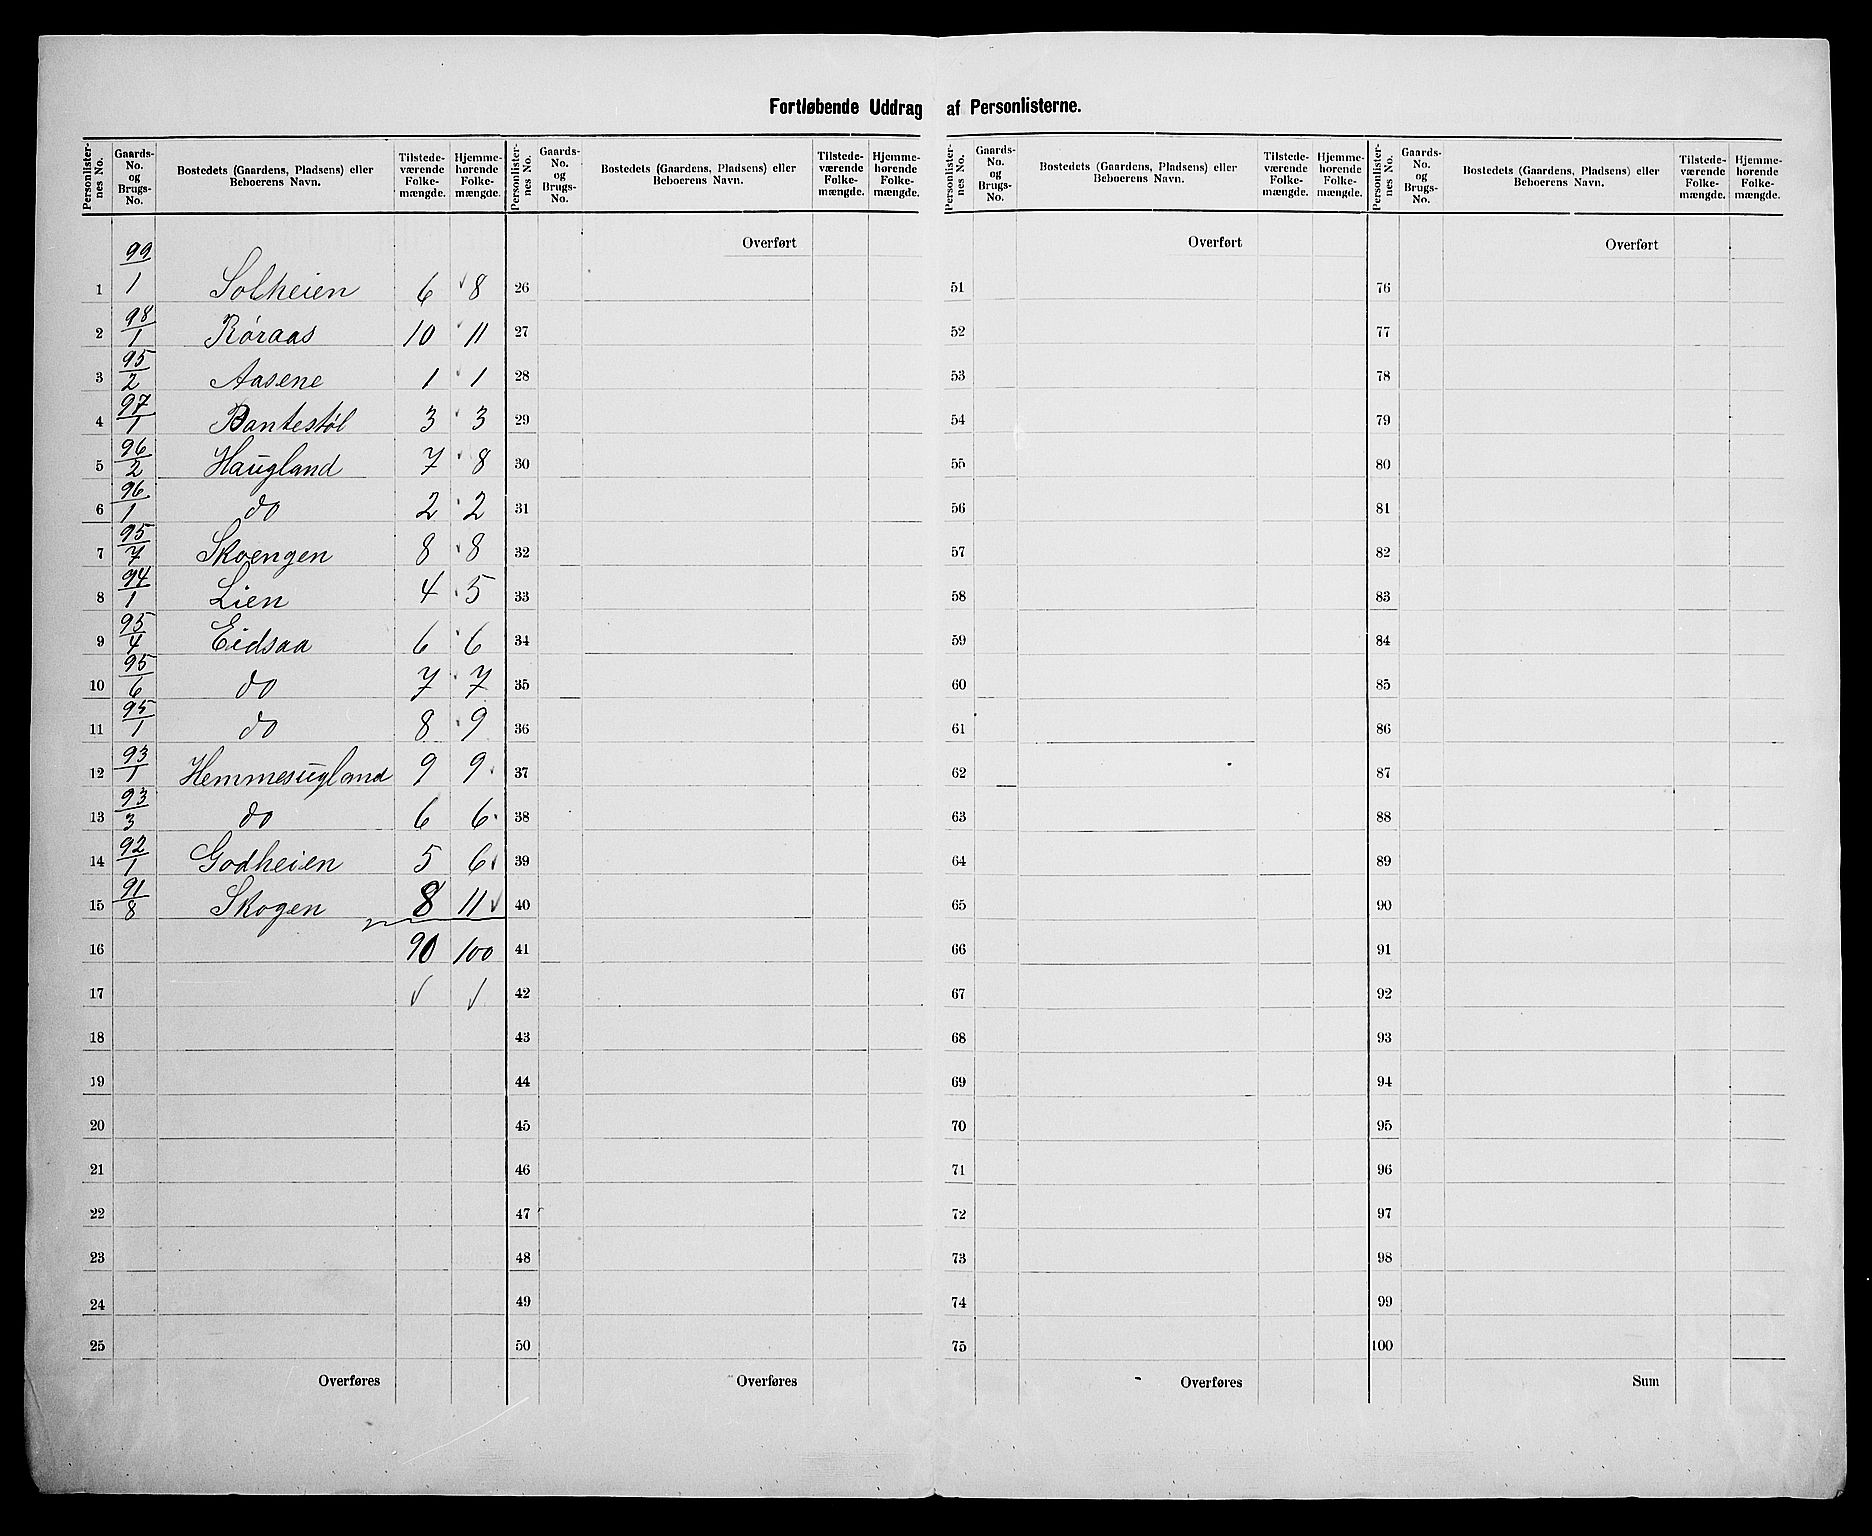 Fortløbende Uddrag af Personlisterne.
Personlister-nes No. Gaards-No. og Brugs-No. Bostedets (Gaardens, Pladsens) eller Beboerens Navn. Tilstede-værende Folke-mængde. Hjemme-hørende Folke-mængde.
Personlister-nes No. Gaards-No. og Brugs-No. Bostedets (Gaardens, Pladsens) eller Beboerens Navn. Tilstede-værende Folke-mængde. Hjemme-hørende Folke-mængde.
Personlister-nes No. Gaards-No. og Brugs-No. Bostedets (Gaardens, Pladsens) eller Beboerens Navn. Tilstede-værende Folke-mængde. Hjemme-hørende Folke-mængde.
Personlister-nes No. Gaards-No. og Brugs-No. Bostedets (Gaardens, Pladsens) eller Beboerens Navn. Tilstede-værende Folke-mængde. Hjemme-hørende Folke-mængde.
1 99/1 Solheien 6 8
2 98/1 Røraas 10 11
3 95/2 Aasene 1 1
4 97/1 Bantestøl 3 3
5 96/2 Haugland 7 8
6 96/1 do 2 2
7 95/7 Skoengen 8 8
8 94/1 Lien 4 5
9 95/4 Eidsaa 6 6
10 95/6 do 7 7
11 95/1 do 8 9
12 93/1 Hemmesugland 9 9
13 93/3 do 6 6
14 92/1 Godheien 5 6
15 91/8 Skogen 8 11
16 90 100
17 √ √
18
19
20
21
22
23
24
25
Overføres
Overført
26
27
28
29
30
31
32
33
34
35
36
37
38
39
40
41
42
43
44
45
46
47
48
49
50
Overføres
Overført
51
52
53
54
55
56
57
58
59
60
61
62
63
64
65
66
67
68
69
70
71
72
73
74
75
Overføres
Overført
76
77
78
79
80
81
82
83
84
85
86
87
88
89
90
91
92
93
94
95
96
97
98
99
100
Sum